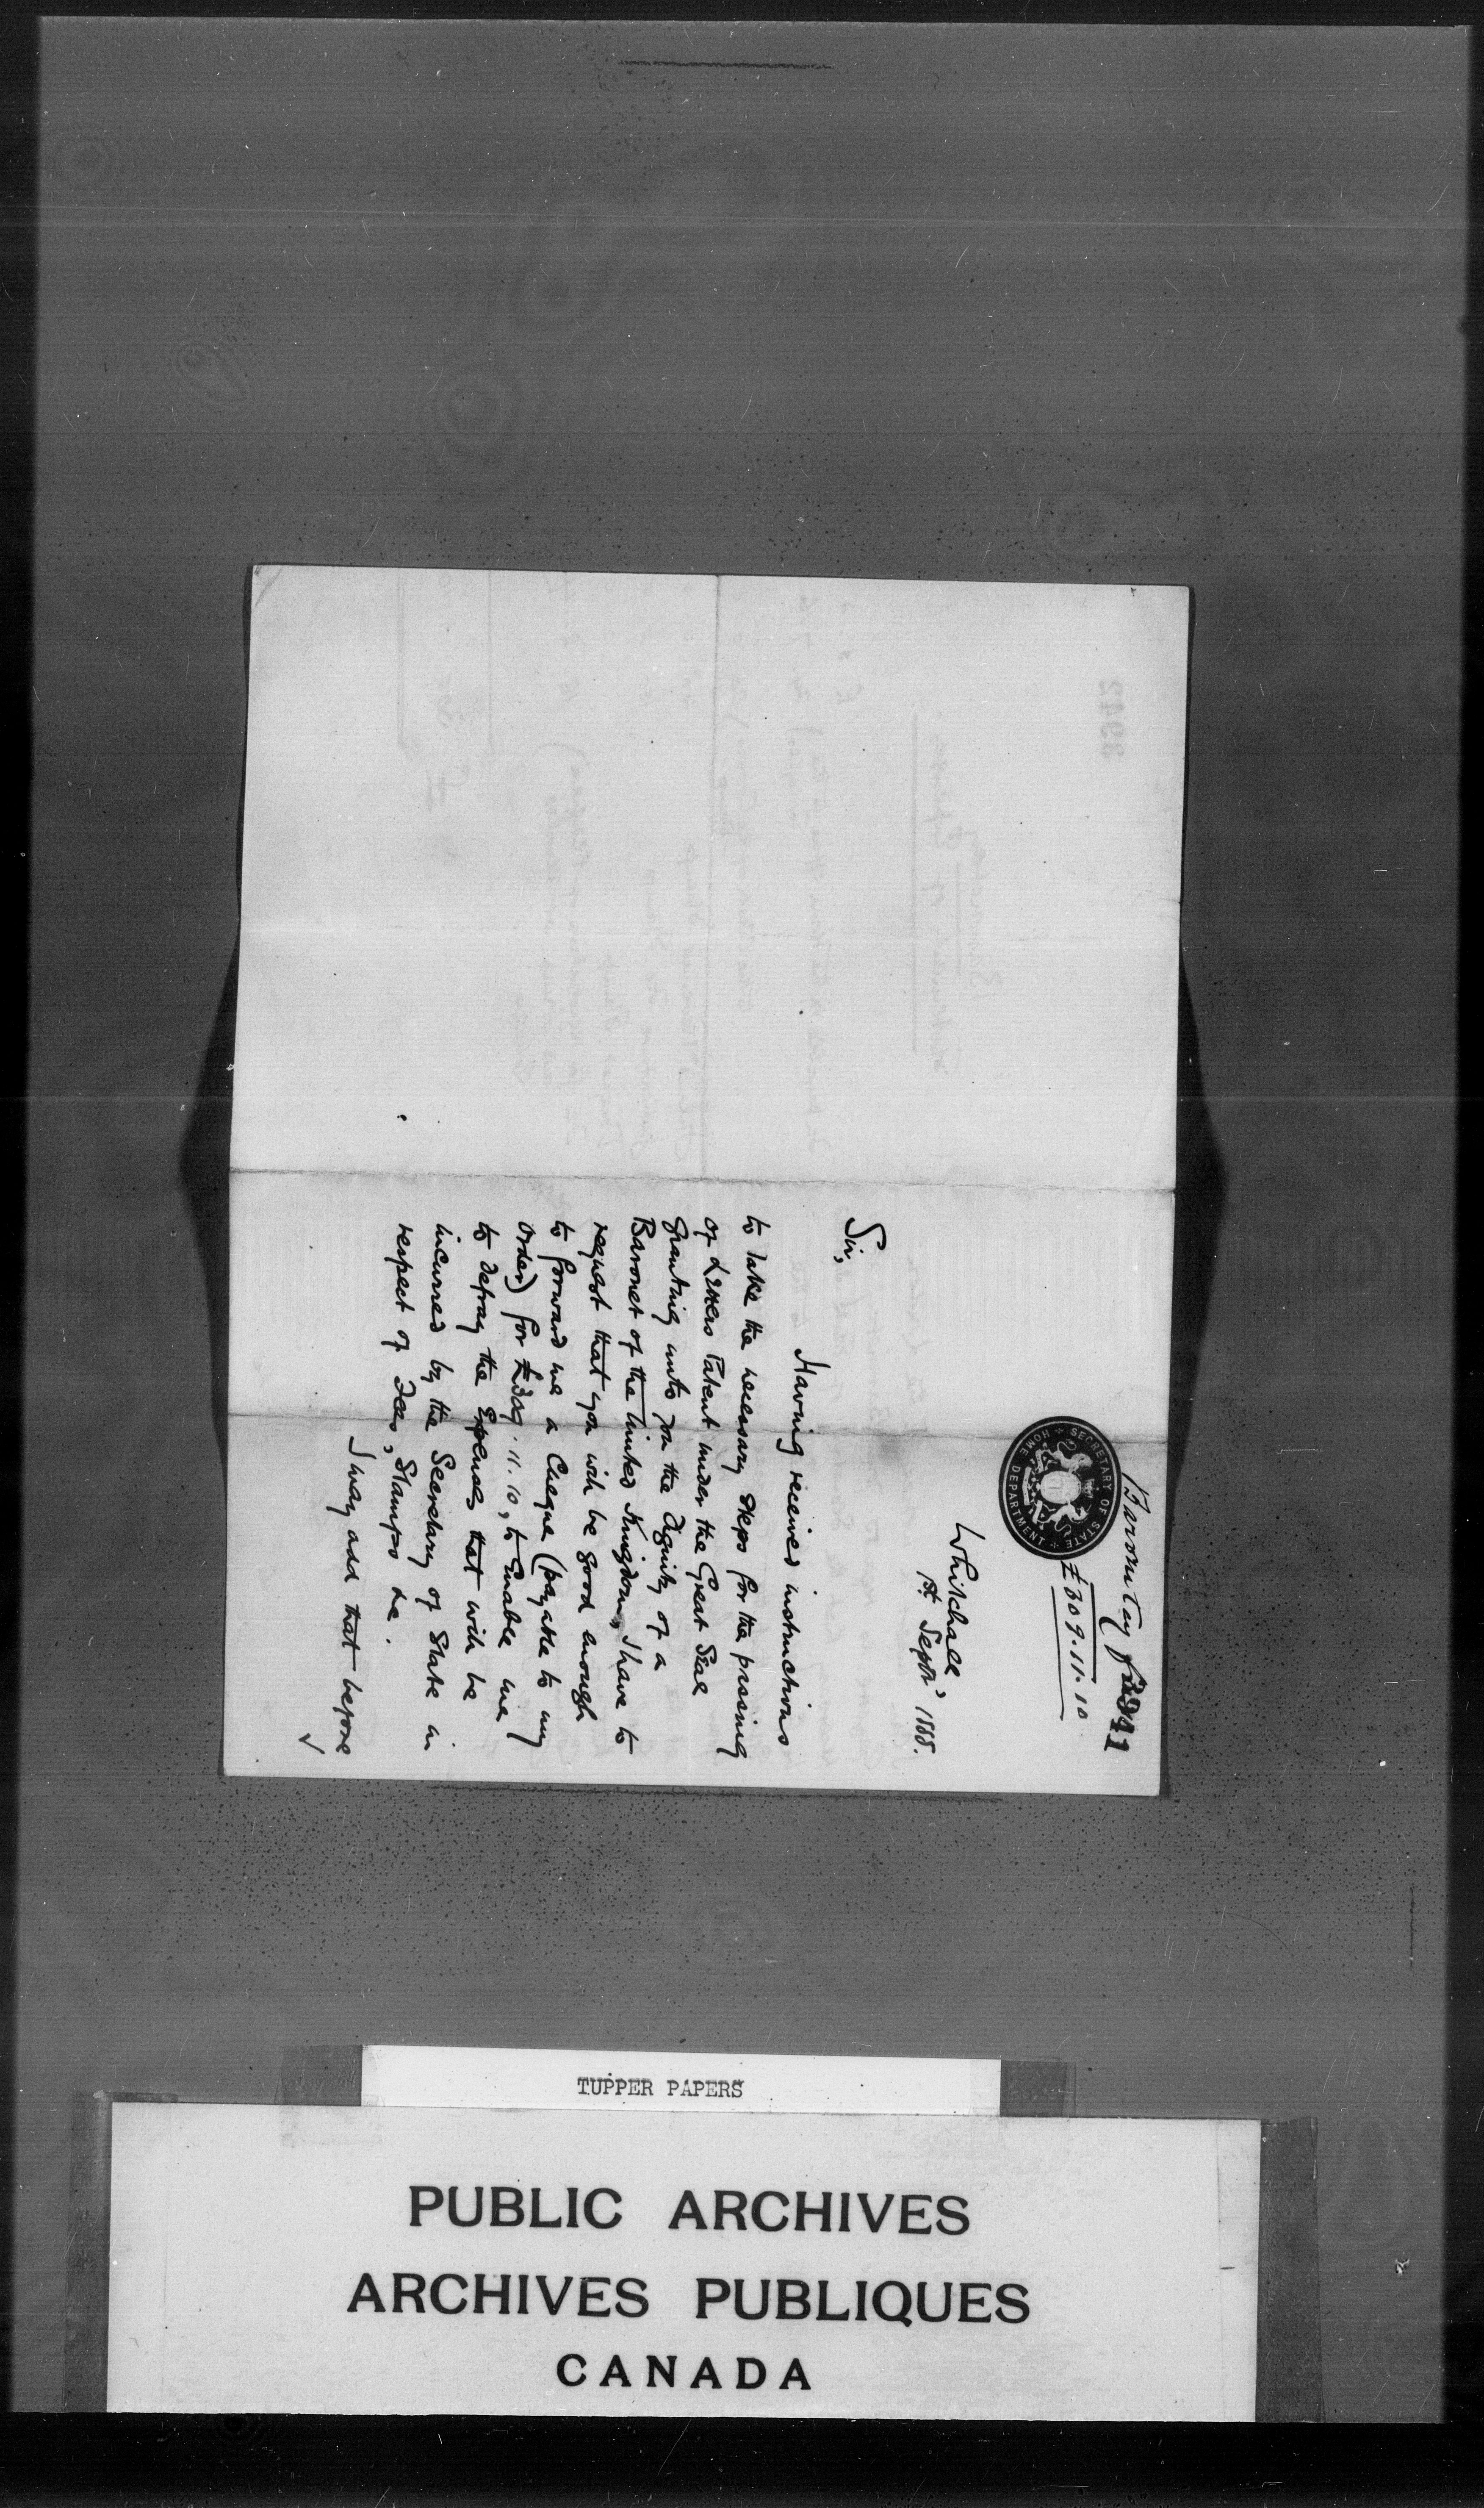 Baronetcy fees
3941
£309.11.10
SECRETARY OF STATE
HOME DEPARTMENT
Whitehall
1st Septr 1888.
Sir,
Having received instructions
to take the necessary steps for the passing
of Letters Patent under the Great Seal
granting unto you the Dignity of a
Baronet of the United Kingdom, I have to
request that you will be good enough
to forward me a Cheque (payable to my
order) for £309.11.10, to Enable me
to defray the Expenses that will be
incurred by the Secretary of State in
respect of Fees, Stamps &c.
I may add that before
3942
TUPPER PAPERS
PUBLIC ARCHIVES
ARCHIVES PUBLIQUES
CANADA